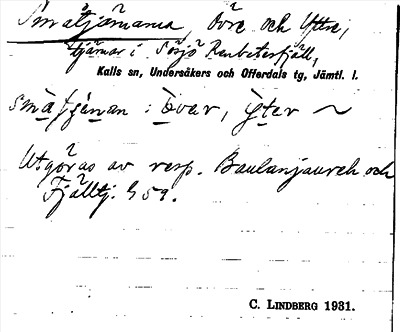 Småtjärnarna, Övre och Yttre,
tjärnar i Sösjö Renbetesfjäll,
Kalls sn, Undersåkers och Offerdals tg, Jämtl. l.
småtjänan : övar, yter ~
Utgöras av resp. Baulanjaureh och
Fjälltj. § 59.
C. LINDBERG 1931.